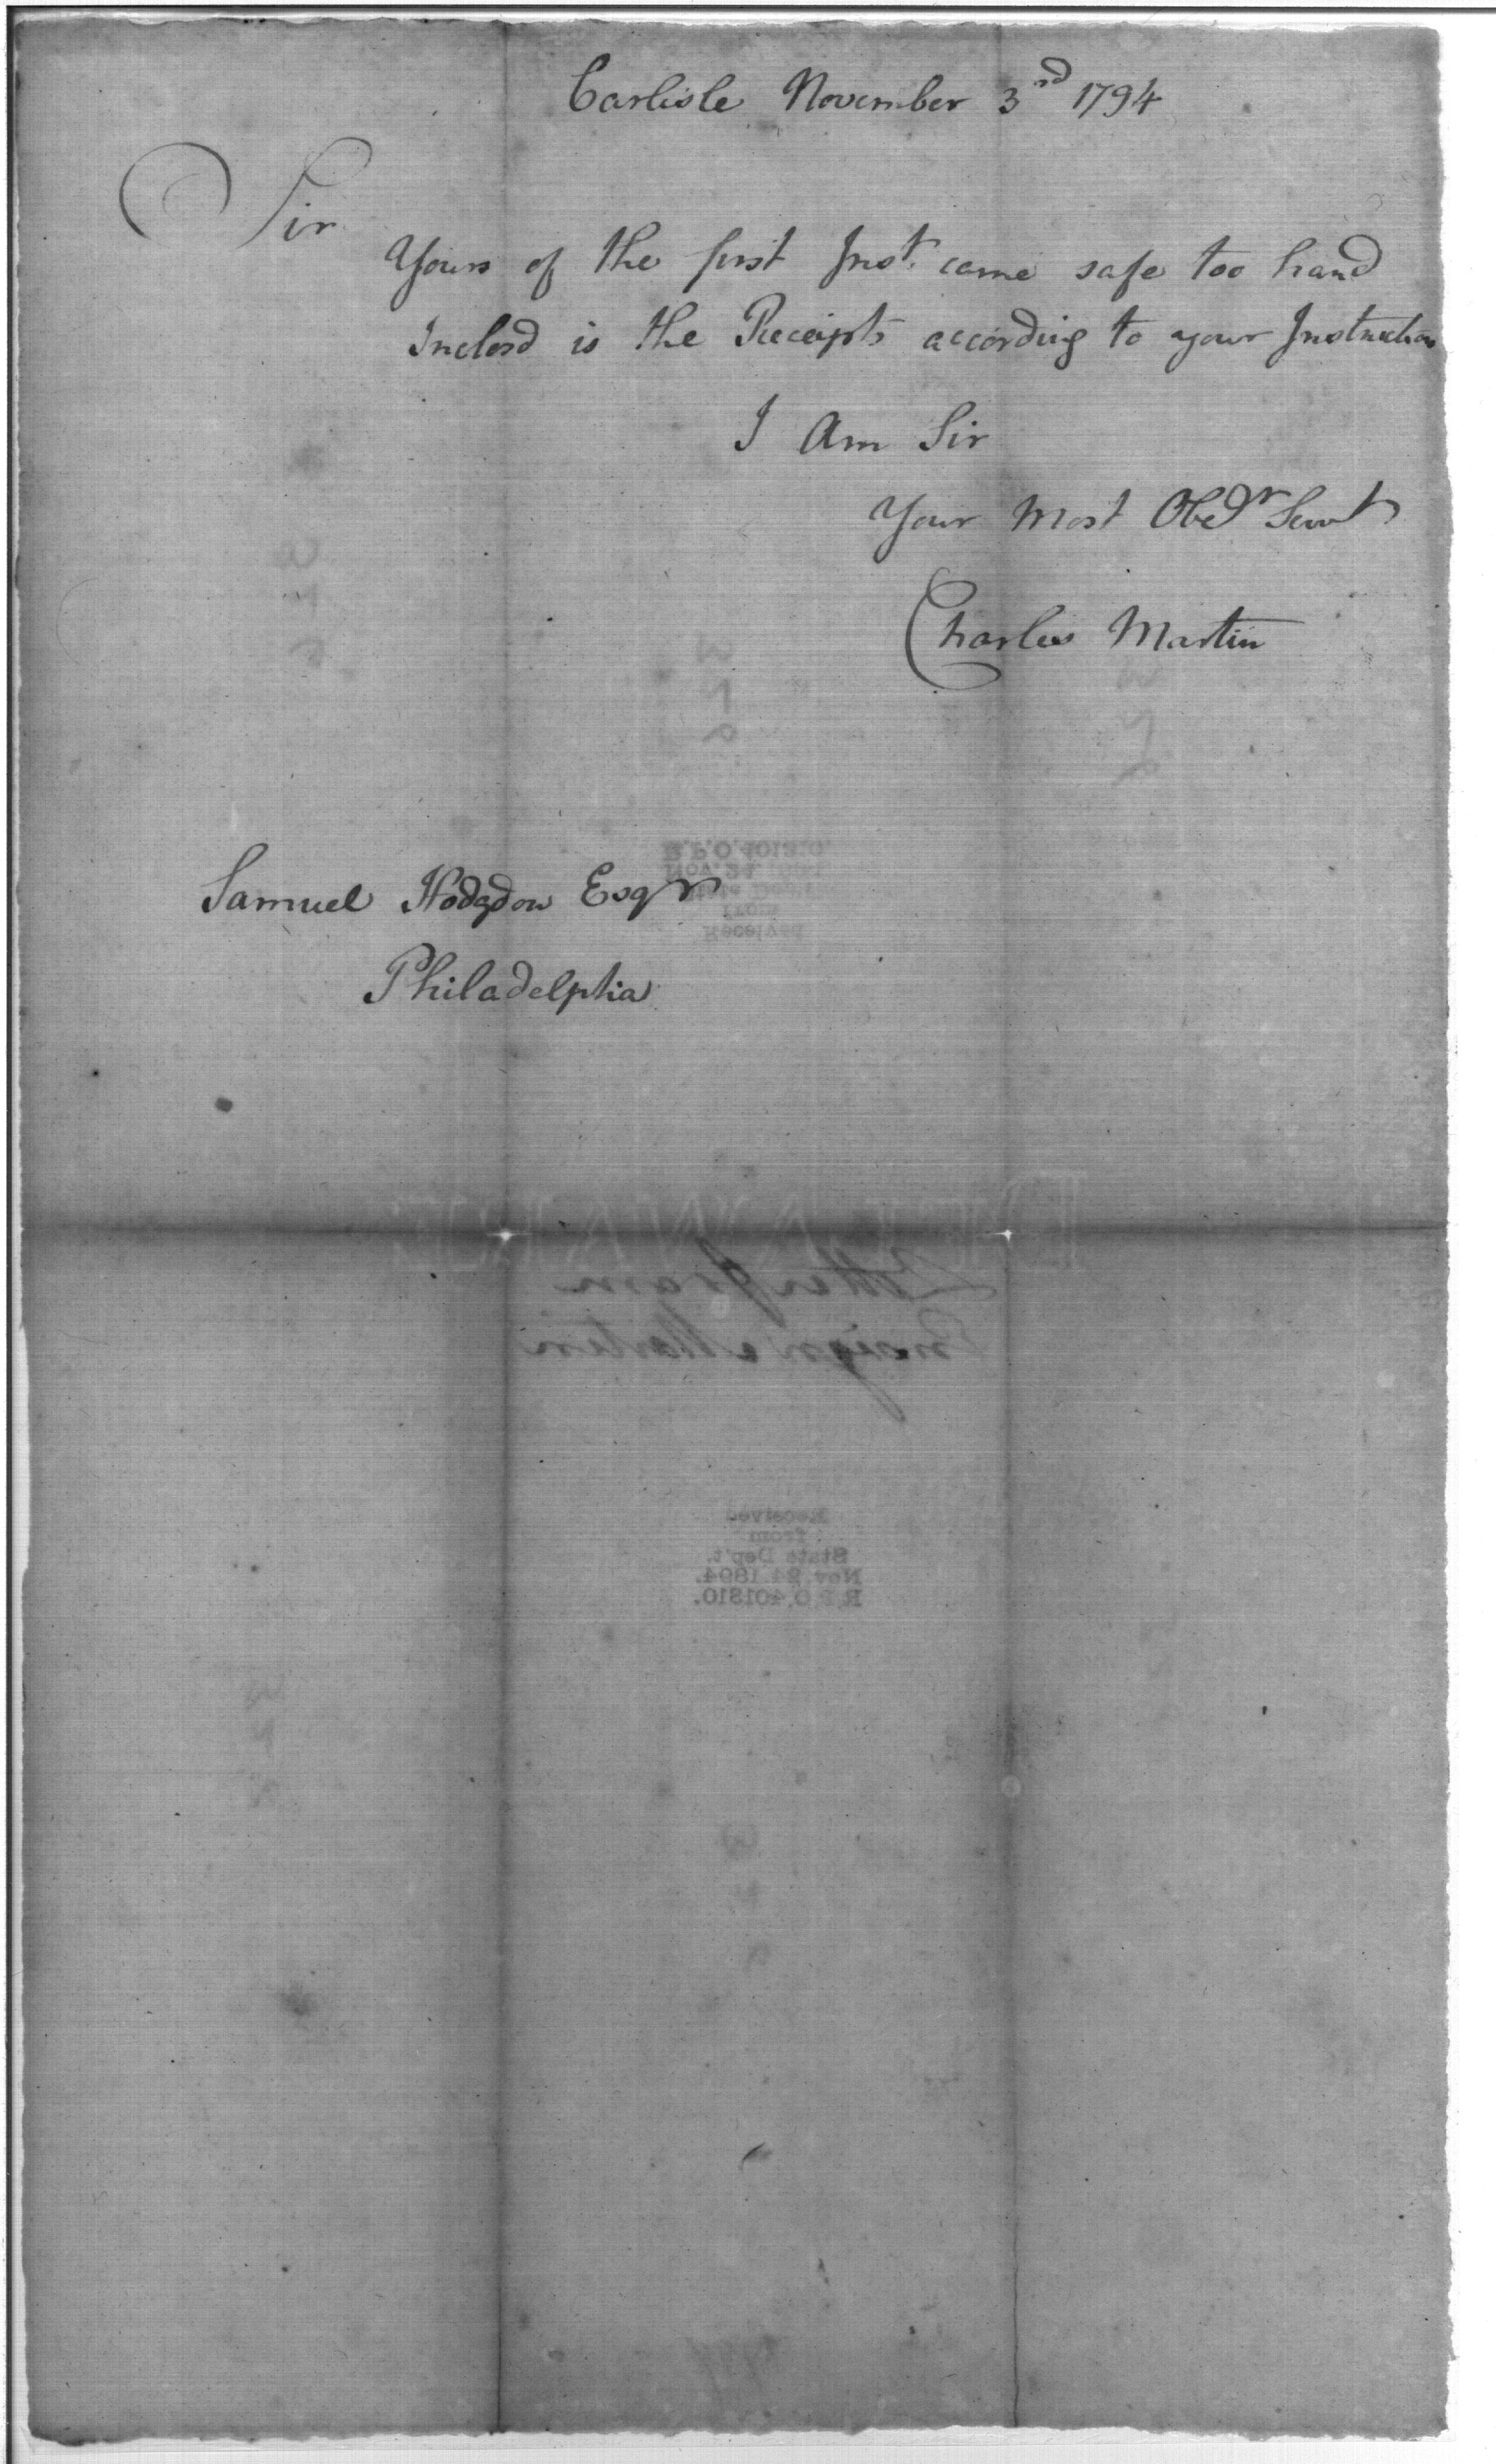 Carlisle November 3rd 1794
Sir
Yours of the first Inst. came safe too hand
Inclosd is the Receipts according to your Instruction
I Am Sir
Your Most Obedr Servt
Charles Martin
Samuel Hodgdon Esqr
Philadelphia
Letter from
Ensign Martin
Received
from
State Dep't.
Nov. 24, 1894.
R.P.O. 401310.